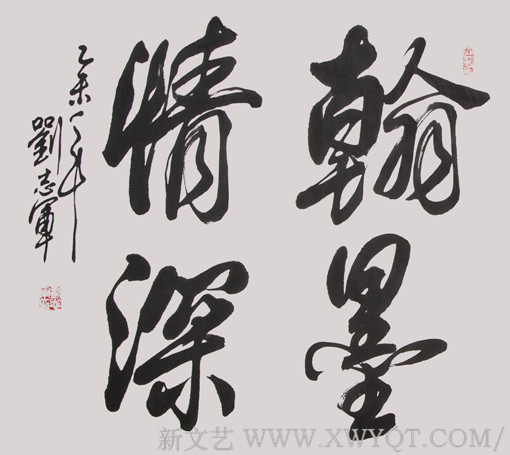 翰墨
情深
乙未年
劉志軍
新文艺 WWW.XWYQT.COM/